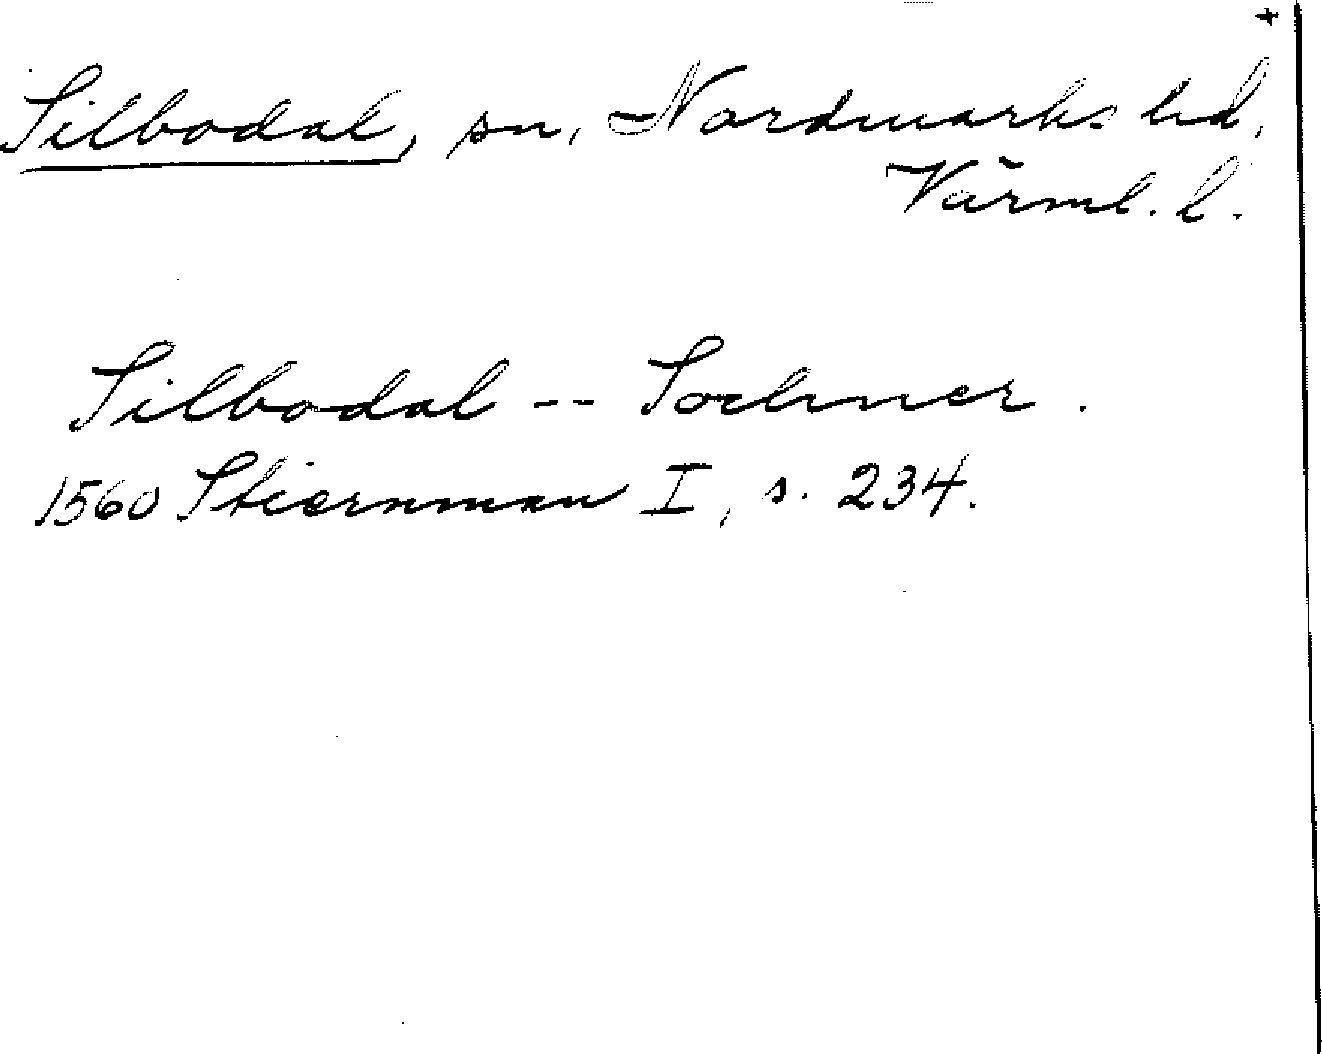 Silbodal, sn, Nordmarks hd,
Värml. l.
Silbodal -- Sochner.
1560 Stiernman I, s. 234.